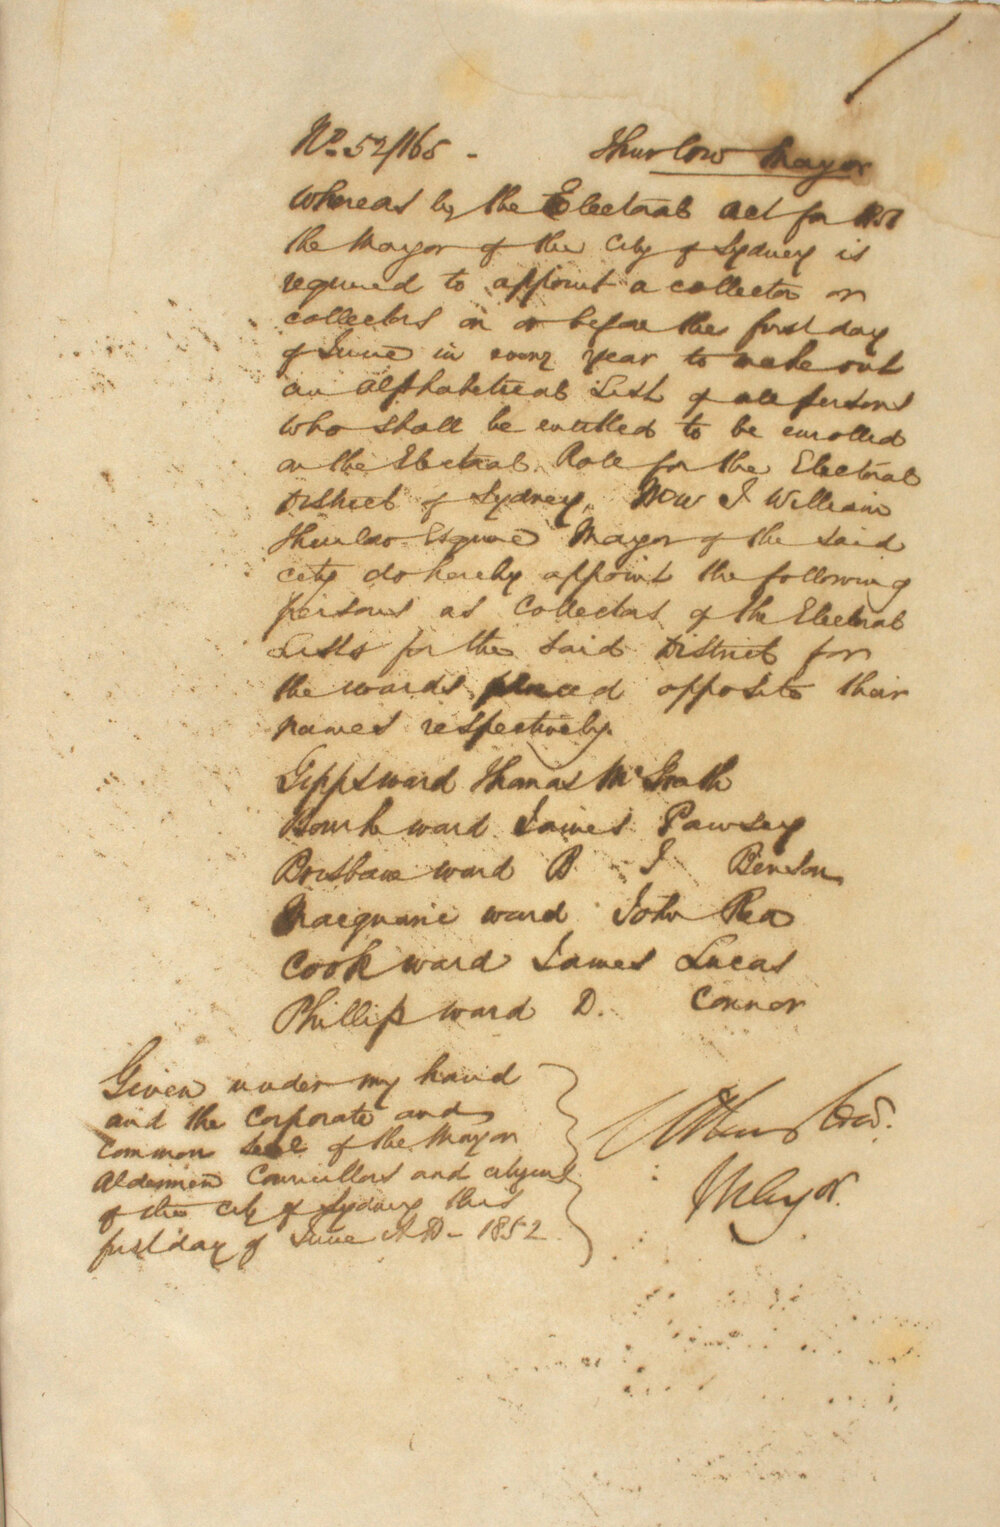 No. 52/165 - Thurlow Mayor
Whereas by the Electoral act for 1851
the Mayor of the City of Sydney is
required to appoint a collector or
collectors on or before the first day
of June in every year to make out
an alphabetical List of all persons
who shall be entitled to be enrolled
on the Electoral Role for the Electoral
District of Sydney, Now I William
Thurlow Esquire Mayor of the said
city do hereby appoint the following
persons as Collectors of the Electoral
Lists for the said District for
the wards placed opposite their
names respectively.
Gipps ward Thomas McGrath
Bourke ward James Pawsey
Brisbane ward B J Benson
Macquarie ward John Rea
Cook ward James Lucas
Phillip ward D. Connor
Given under my hand
and the Corporate and
Common Seal of the Mayor
Aldermen Councillors and citizens
of the city of Sydney this
first day of June A.D - 1852
Wm Thurlow.
Mayor.